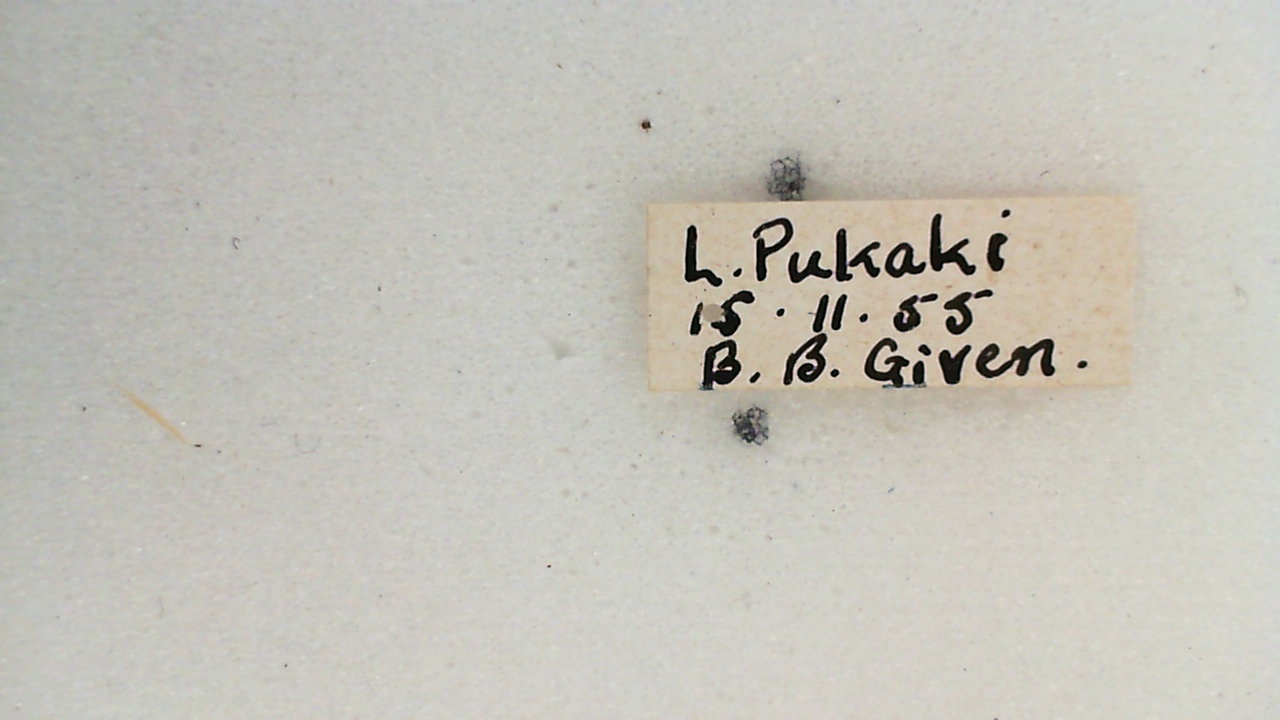 L. Pukaki
15. 11. 55
B. B. Given.